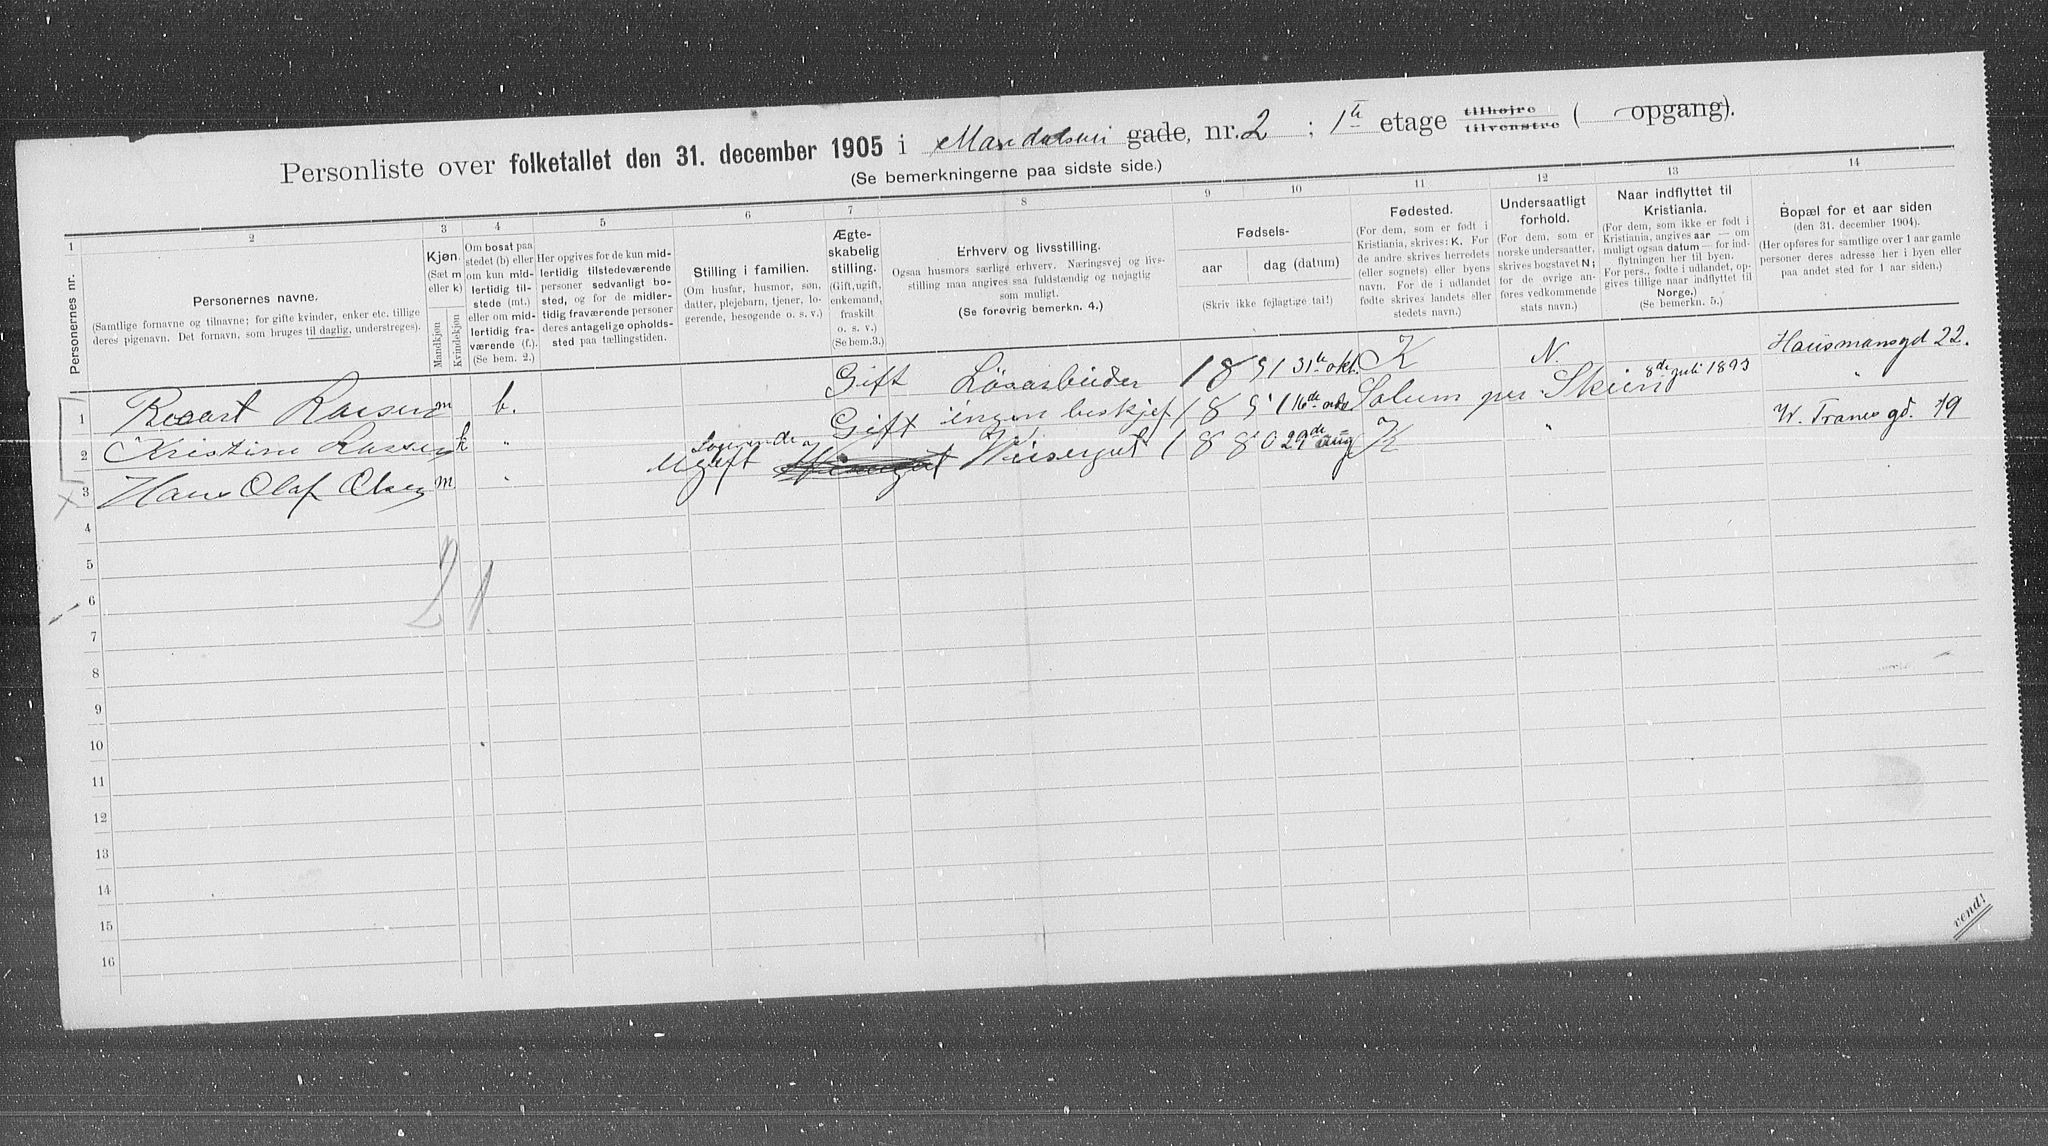 Personliste over folketallet den 31. december 1905 i Mandalsen gade, nr. 2 ; 1ste etage tilhøire tilvenstre ( opgang).
(Se bemerkningerne paa sidste side.)
1 2 3 4 5 6 7 8 9 10 11 12 13 14
Personernes nr.
Personernes navne.
(Samtlige fornavne og tilnavne; for gifte kvinder, enker etc. tillige
deres pigenavn. Det fornavn, som bruges til daglig, understreges).
Kjøn.
(Sæt m
eller k)
Mandkjøn
Kvindekjøn
Om bosat paa
stedet (b) eller
om kun mid-
lertidig til-
stede (mt.)
eller om mid-
lertidig fra-
værende (f.).
(Se bem. 2.)
Her opgives for de kun mid-
lertidig tilstedeværende
personer sedvanligt bo-
sted, og for de midler-
tidig fraværende personer
deres antagelige opholds-
sted paa tællingstiden.
Stilling i familien.
(Om husfar, husmor, søn,
datter, plejebarn, tjener, lo-
gerende, besøgende o. s. v.)
Ægte-
skabelig
stilling.
(Gift, ugift,
enkemand,
fraskilt
o. s. v.)
(Se bem.3.)
Erhverv og livsstilling.
Ogsaa husmors særlige erhverv. Næringsvej og livs-
stilling maa angives saa fuldstændig og nøjagtig
som muligt.
(Se forøvrig bemerkn. 4.)
Fødsels-
aar dag (datum)
(Skriv ikke fejlagtige tal!)
Fødested.
(For dem, som er født i
Kristiania, skrives: K. For
de andre skrives herredets
(eller sognets) eller byens
navn. For de i udlandet
fødte skrives landets eller
stedets navn.)
Undersaatligt
forhold.
(For dem, som er
norske undersaatter,
skrives bogstavet N;
for de øvrige an-
føres vedkommende
stats navn.)
Naar indflyttet til
Kristiania.
(For dem, som ikke er født i
Kristiania, angives aar — om
muligt ogsaa datum — for ind-
flytningen her til byen.
For pers., fødte i udlandet, op-
gives tillige naar indflyttet til
Norge.)
(Se bemerkn. 5.)
Bopæl for et aar siden
(den 31. december 1904).
(Her opføres for samtlige over 1 aar gamle
personer deres adresse her i byen eller
paa andet sted for 1 aar siden.)
1 m b. Gift Løsarbeider 1851 31te okt. K N. Hausmansgd 22.
2 Kristine k " Gift ingen beskjef 1851 16de Solum per Skien 8de juli 1893 "
3 Hans Olaf Olsen m " Logerende Ugift Visergut 1880 29de aug K " W. Tranes gd. 19
4
5
6
7
8
9
10
11
12
13
14
15
16
2 1
vend!